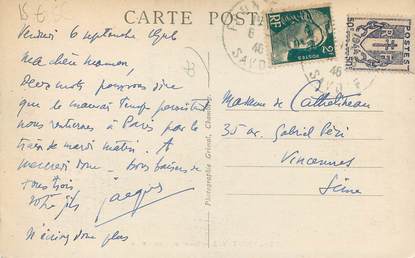 CARTE POSTALE
Vendredi 6 septembre 1946
Ma chère maman,
Deux mots pour vous dire
que le mauvais temps persistant
nous rentrerons à Paris par le
train de mardi matin. A
mercredi donc. bons baisers de
tous trois
Votre fils Jacques
N'écrivez donc plus
Photographie Grimal, Chamonix
POSTES
RF
2F
46
POSTES
RF
50c
46
Madame de Cathelineau
35 av. Gabriel Péri
Vincennes
Seine